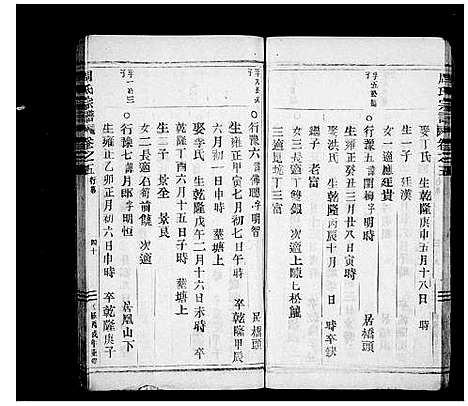 周氏宗譜 卷之五
娶丁氏 生乾隆庚申五月十八日 時
一子 廷漢
女一適應廷貴
行豫五 諱開梅 字明時 居橋頭
生雍正癸丑三月廿八日寅時
娶洪氏 生乾隆丙辰十月 日 時卒缺
繼子 老富
女三長適丁雙銀 次適上陳七松龍
三適見坑丁三富
行豫六 諱傳聰 字明智 居橋頭
生雍正甲寅七月初七日午時 卒乾隆甲辰
六月初一日申時 墓塘上
娶李氏 生乾隆戊午二月十六日未時 卒
乾隆丁酉六月十五日子時 墓塘上
二子 景奎 景良
女二長適石筍前 次適
行豫七 諱月郎 字明恒 居凰山下
生雍正乙卯正月初六日申時 卒乾隆庚子
周氏宗譜 卷之五 行第 四十